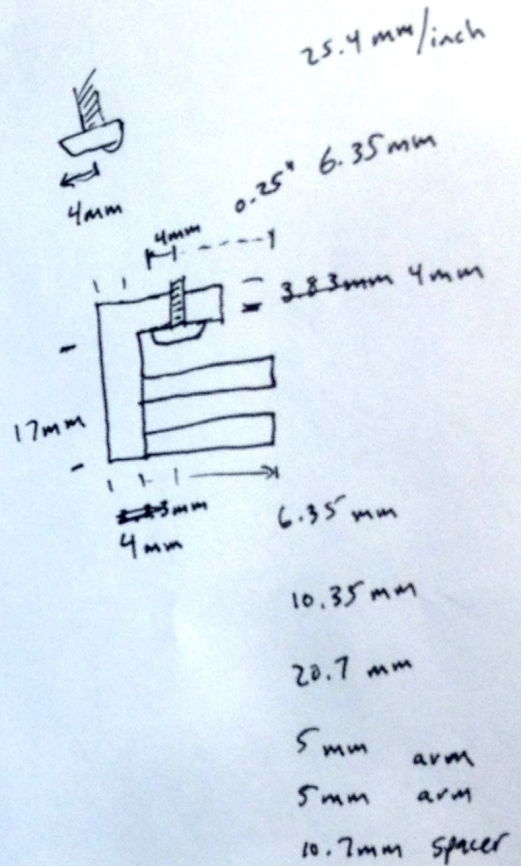 25.4 mm/inch
4mm
0.25" 6.35mm
4mm
3.83mm 4mm
17mm
3mm
4mm
6.35 mm
10.35 mm
20.7 mm
5mm arm
5mm arm
10.7mm spacer